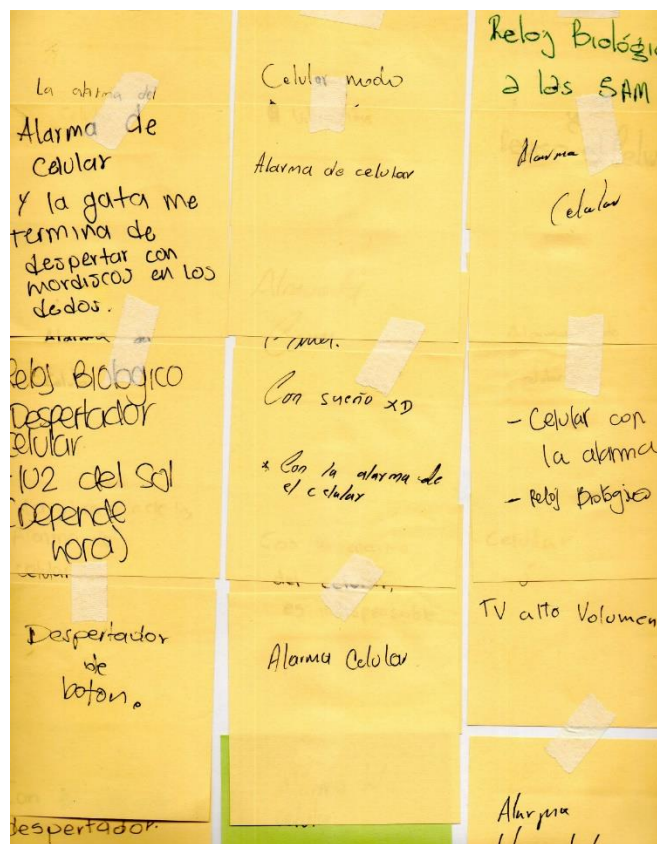 La alarma del
Alarma de
Celular
Y la gata me
termina de
despertar con
mordiscos en los
dedos.
Alarma
Reloj Biologico
Despertador
Celular
luz del Sol
(Depende
hora)
celular
Despertador
de
boton.
despertador.
Celular modo
Alarma de celular
Con sueño XD
* Con la alarma de
el celular
del celular,
Alarma Celular
Reloj Biológic
a las 5AM
Alarma
Celular
- Celular con
la alarma
- Reloj Biológico
TV alto Volumen
Alarma